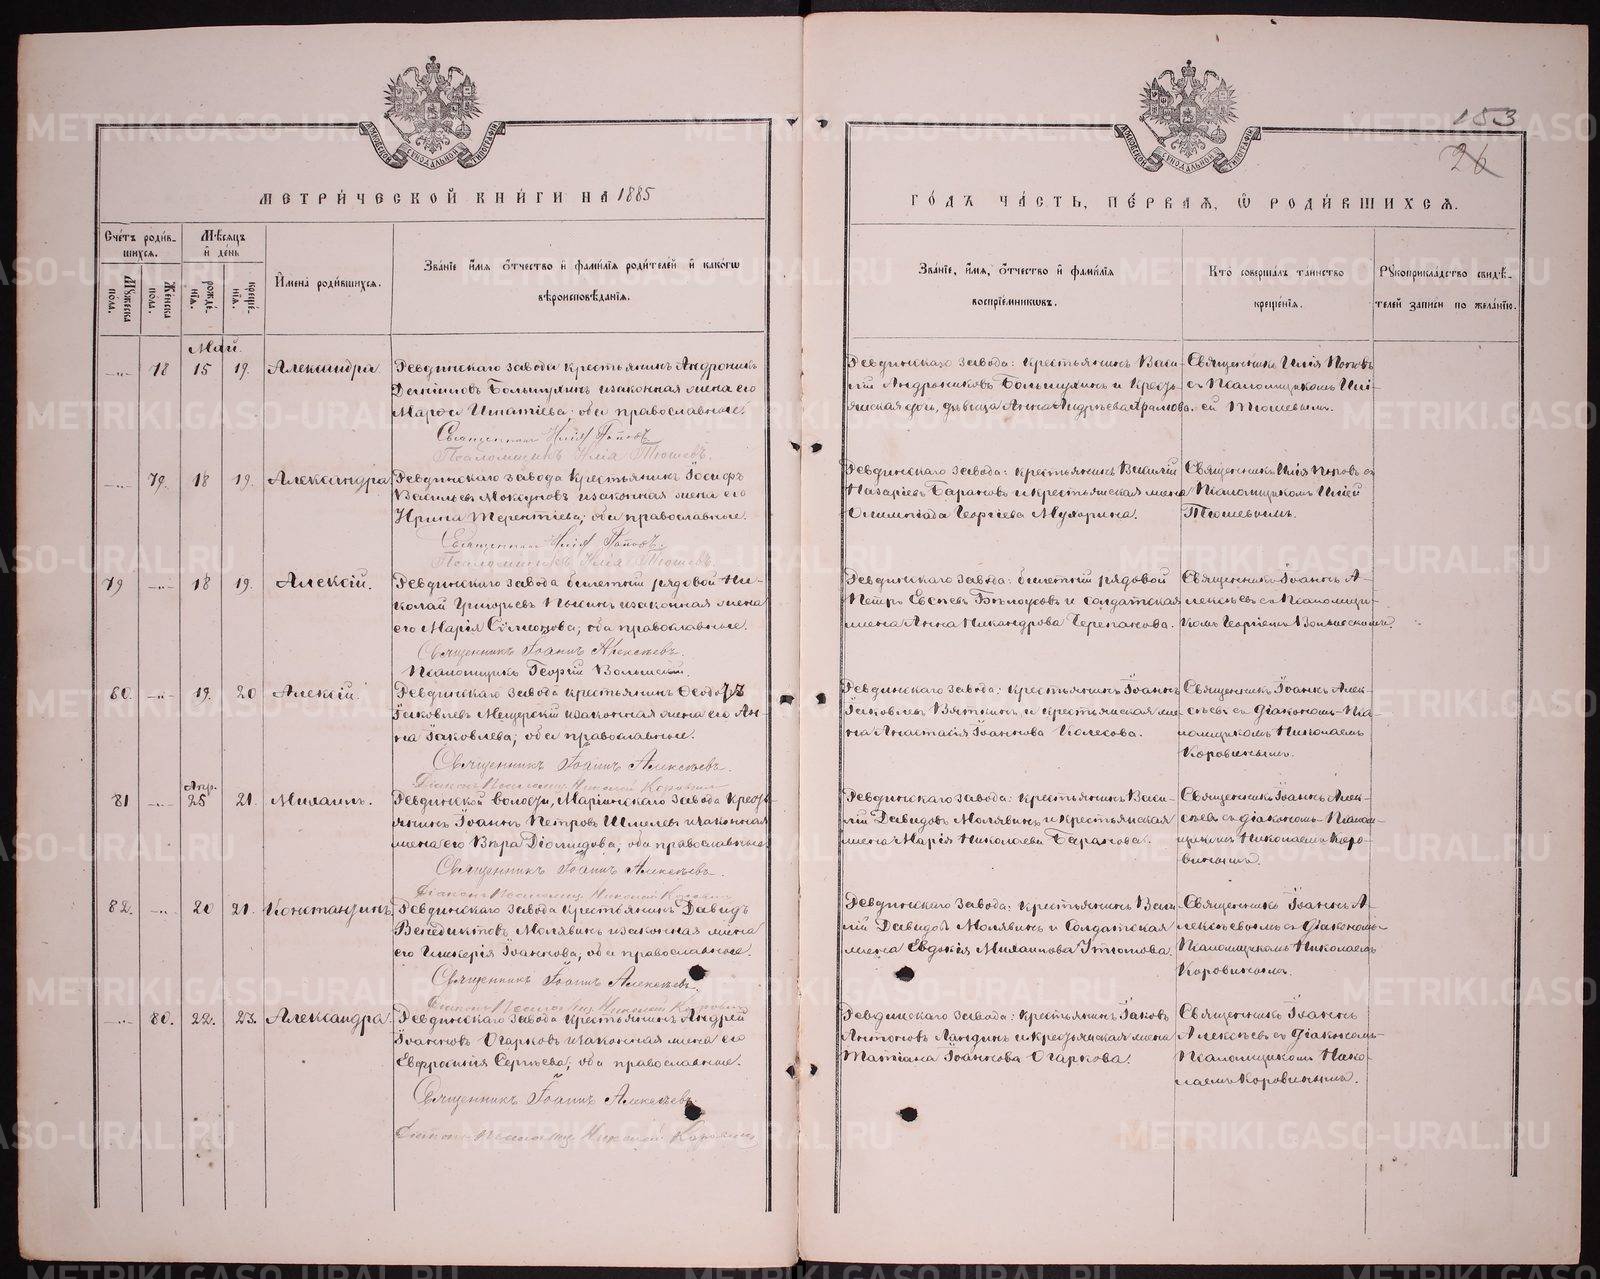 153
26
МОСКОВСКОЙ СѴНОДАЛЬНОЙ ТИПОГРАФІИ
МОСКОВСКОЙ СѴНОДАЛЬНОЙ ТИПОГРАФІИ
МЕТРИ́ЧЕСКОЙ КНИ́ГИ НА 1885
ГО́ДЪ ЧА́СТЬ, ПЕ́РВАѦ, Ѿ РОДИ́ВШИХСѦ.
Сче́тъ роди́в-
шихсѧ.
Мꙋ́жеска
по́ла.
Же́нска
по́ла.
Мѣ́сѧцъ
и҆ де́нь
рожде́-
нїѧ.
креще́-
нїѧ.
И҆мена̀ роди́вшихсѧ.
Зва́нїе и҆́мѧ ѻ҆́тчество и҆ фамилїѧ роди́телей и҆ како́гѡ
вѣроисповѣ́данїѧ.
Зва́нїе, и҆́мѧ, ѻ҆́тчество и҆ фамилїѧ
воспрїе́мникѡвъ.
Кто̀ соверша́лъ та́инство
креще́нїѧ.
Рꙋкоприкла́дство свидѣ́-
телей за́писи по жела́нїю.
Май.
-"- 78 15 19. Александра.
Ревдинскаго завода крестьянинъ Андроникъ
Болшухинъ и законная жена его
Марѳа Игнатіева; оба православные.
Священникъ Илія Поповъ
Псаломщикъ Илія Тюшевъ.
Ревдинскаго завода: крестьянинъ Васи-
лій Андрониковъ Болшухинъ и Кресть-
янская дочь, дѣвица Анна Андреева
Священникъ Илія Поповъ
съ Псаломщикомъ Илі-
ей Тюшевымъ.
-"- 79. 18 19. Александра
Ревдинскаго завода крестьянинъ Іосифъ
Васильевъ Мокроусовъ и законная жена его
Ирина Терентіева; оба православные.
Священникъ Илія Поповъ.
Псаломщикъ Илія Тюшевъ.
Ревдинскаго завода: крестьянинъ Василій
Назаріевъ Барановъ и крестьянская жена
Олимпіада Георгіева Мухорина.
Священникъ Илія Поповъ съ
Псаломщикомъ Иліей
Тюшевымъ.
79 -"- 18 19. Алексій.
Ревдинскаго завода билетный рядовой Ни-
колай Григорьевъ и законная жена
его Марія Сѷмеонова; оба православные.
Священникъ Іоаннъ Алексѣевъ.
Псаломщикъ Георгій
Ревдинскаго завода: билетный рядовой
Петръ Евсѣевъ Бѣлоусовъ и солдатская
жена Анна Никандрова Черепанова.
Священникъ Іоаннъ А-
лексѣевъ съ Псаломщи-
комъ Георгіемъ
80. -"- 19. 20 Алексій.
Ревдинскаго завода крестьянинъ Ѳеодоръ
Іаковлевъ Мещерскій и законная жена его Ан-
на Іаковлева; оба православные.
Священникъ Іоаннъ Алексѣевъ.
Діаконъ Псаломщ. Николай Коровинъ
Ревдинскаго завода: крестьянинъ Іоаннъ
Іаковлевъ Вяткинъ, и крестьянская же-
на Анастасія Іоаннова Колесова.
Священникъ Іоаннъ Алек-
сѣевъ съ діакономъ-Пса-
ломщикомъ Николаемъ
Коровинымъ.
Апр.
81 -"- 25 21. Михаилъ.
Ревдинской волости, Маріинскаго завода Кресть-
янинъ Іоаннъ Петровъ Шмелевъ и законная
жена его Вѣра Діомидова; оба православные.
Священникъ Іоаннъ Алексѣевъ.
Діаконъ Псаломщ. Николай Коровинъ
Ревдинскаго завода: крестьянинъ Васи-
лій Давидовъ Молявинъ и крестьянская
жена Марія Николаева Баранова.
Священникъ Іоаннъ Алек-
сѣевъ съ діакономъ-Псалом-
щикомъ Николаемъ Коро-
винымъ.
82. -"- 20 21. Константинъ.
Ревдинскаго завода крестьянинъ Давидъ
Венедиктовъ Молявинъ и законная жена
его Гликерія Іоаннова; оба православные.
Священникъ Іоаннъ Алексѣевъ.
Діаконъ Псаломщ. Николай Коровинъ
Ревдинскаго завода: крестьянинъ Васи-
лій Давидовъ Молявинъ и Солдатская
жена Евдокія Михаилова
Священникъ Іоаннъ А-
лексѣевымъ съ діакономъ-
Псаломщикомъ Николаемъ
Коровинымъ.
-"- 80. 22. 23. Александра.
Ревдинскаго завода крестьянинъ Андрей
Іоанновъ Огарковъ и законная жена его
Евфросинія Сергѣева; оба православные.
Священникъ Іоаннъ Алексѣевъ.
Діаконъ Псаломщ. Николай Коровинъ
Ревдинскаго завода: крестьянинъ Іаковъ
Антоновъ Ландинъ и Крестьянская жена
Татіана Іоаннова Огаркова.
Священникъ Іоаннъ
Алексѣевъ съ діакономъ-
Псаломщикомъ Нико-
лаемъ Коровинымъ.
METRIKI.GASO-URAL.RU